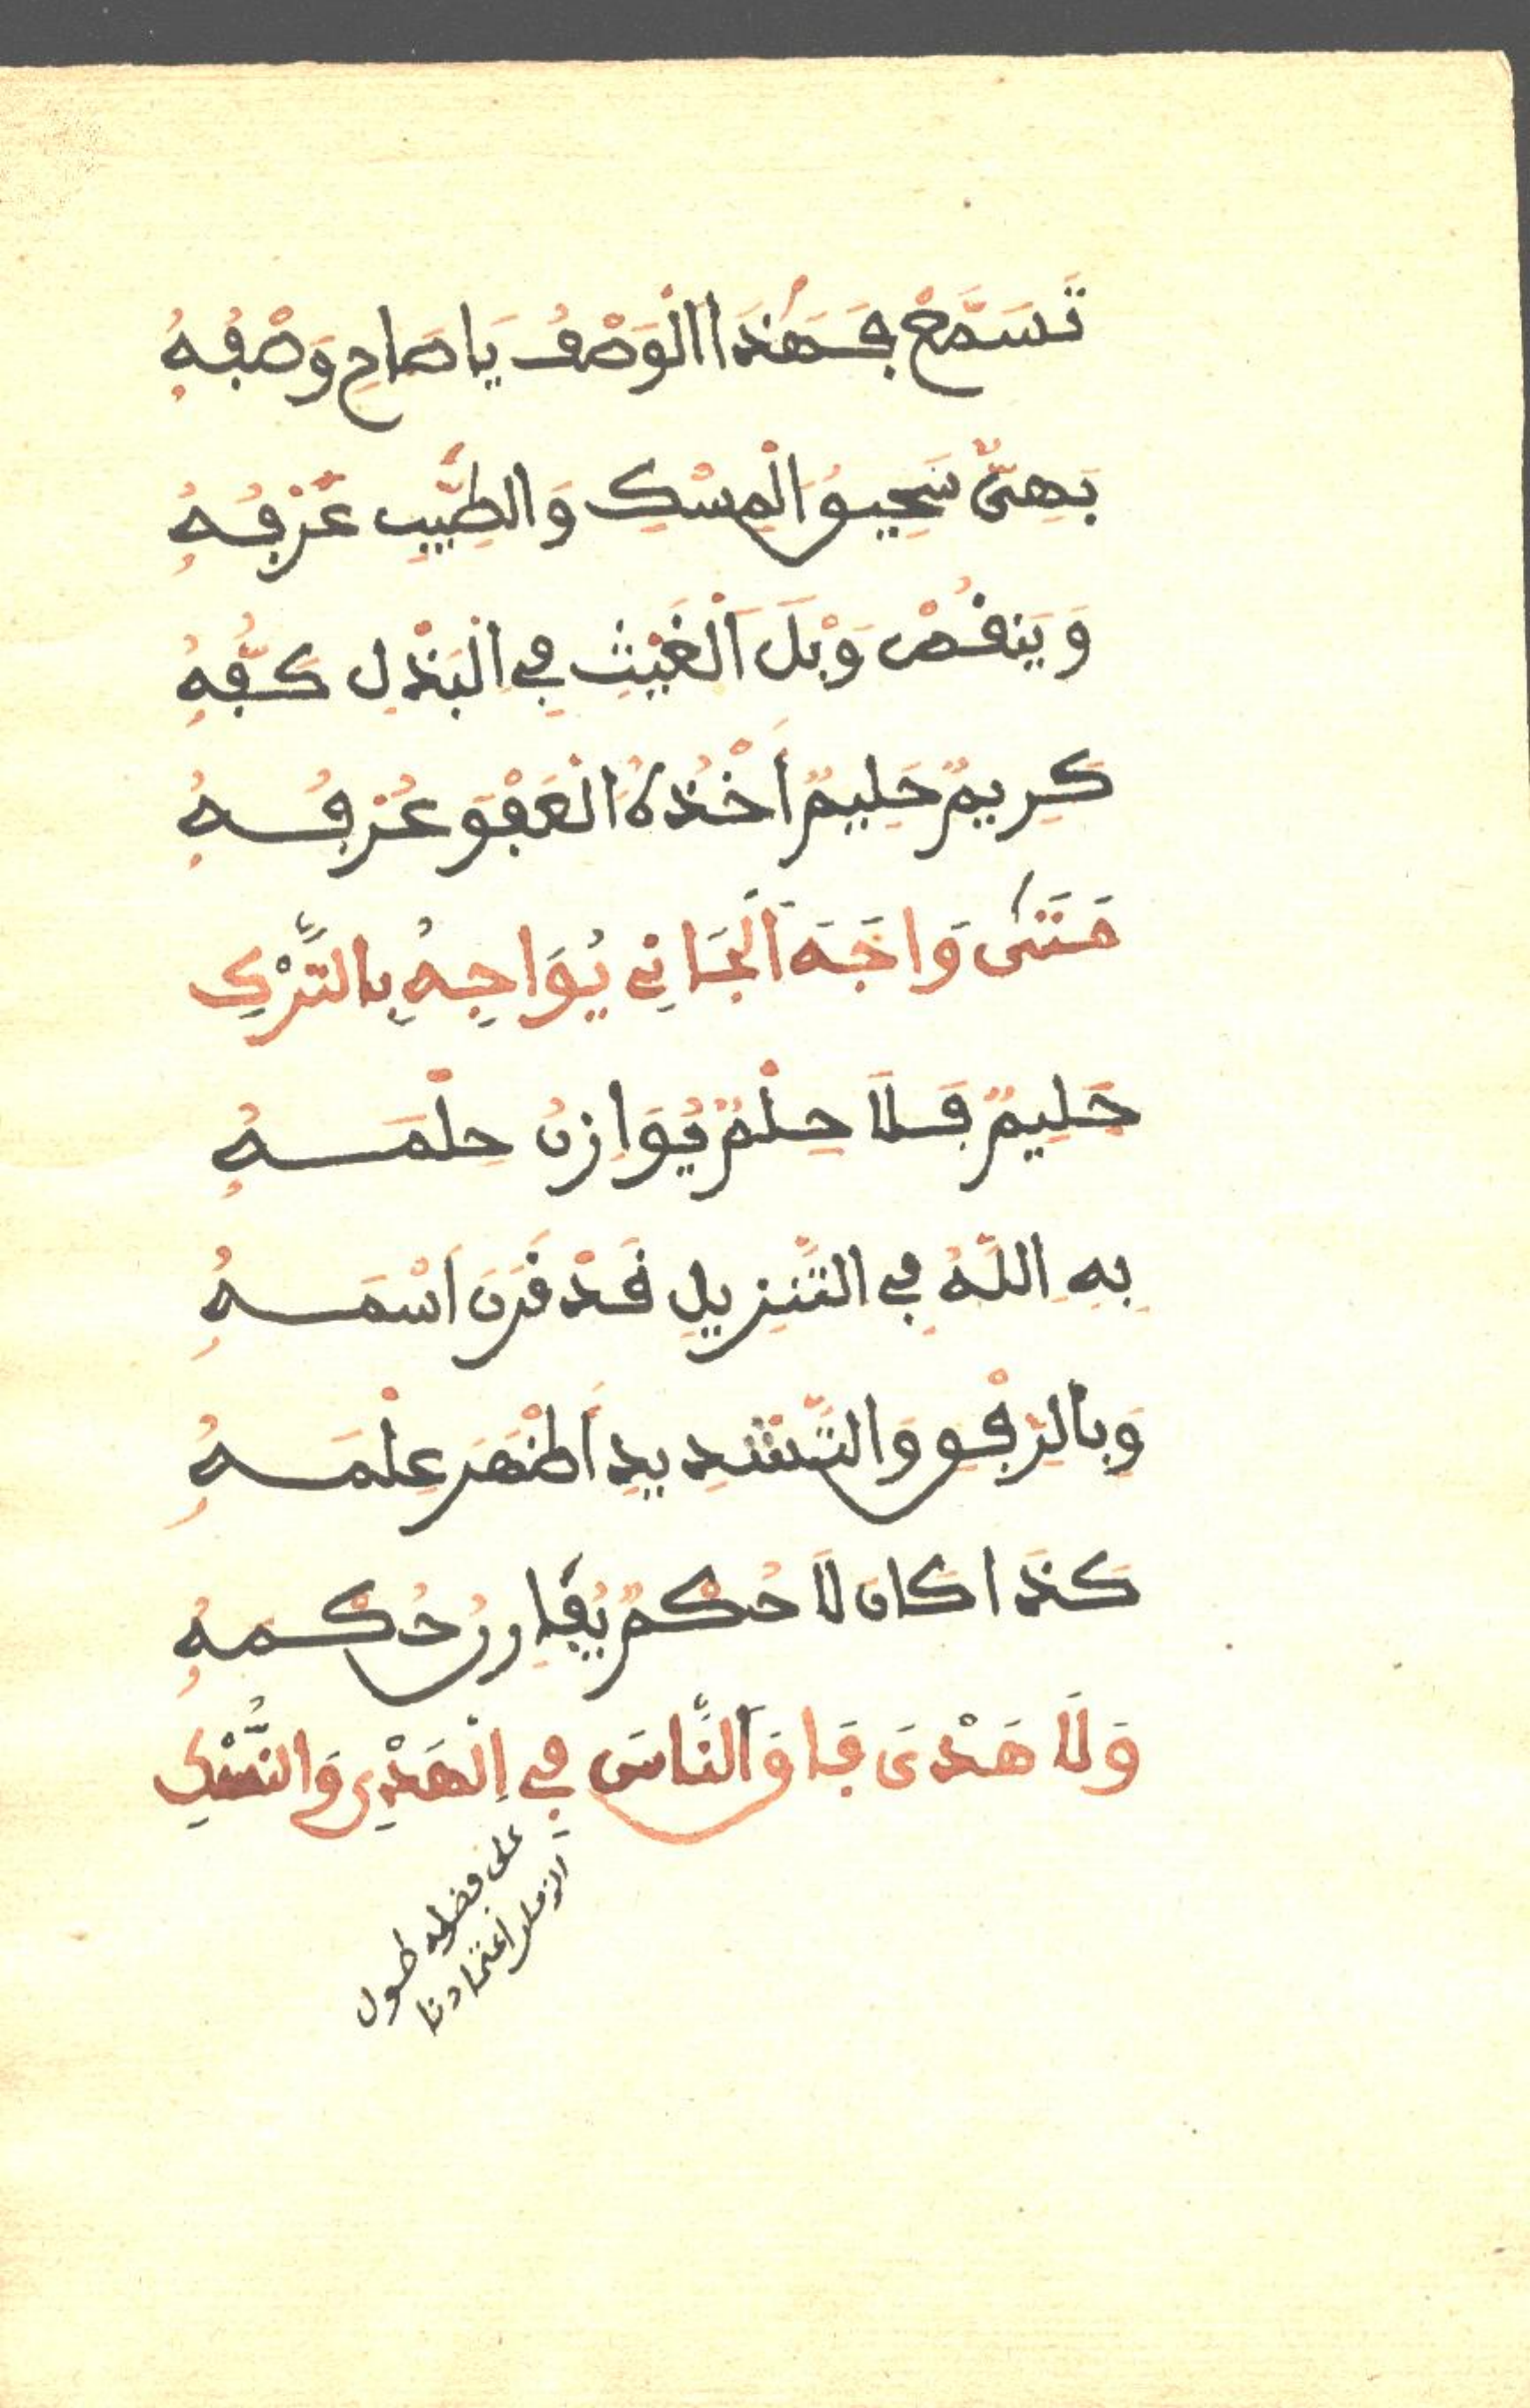 تَسَمَّعْ فَهَذَا الْوَصْفُ يَا صَاحِ وَصْفُهُ
بَهِيٌّ سَحِيقُ الْمِسْكِ وَالطِّيبِ عَرْفُهُ
وَيَنْقُصُ وَبْلَ الْغَيْثِ فِي الْبَذْلِ كَفُّهُ
كَرِيمٌ حَلِيمٌ أَخْذُهُ الْعَفْوَ عُرْفُهُ
مَتَى وَاجَهَ الْجَانِي يُوَاجِهُ بِالتَّرْكِ
حَلِيمٌ فَلَا حِلْمٌ يُوَازِنُ حِلْمَهُ
بِهِ اللَّهُ فِي التَّنْزِيلِ قَدْ قَرَنَ اسْمَهُ
وَبِالرِّفْقِ وَالتَّشْدِيدِ أَظْهَرَ عِلْمَهُ
كَذَا كَانَ لَا حُكْمٌ يُقَارِرُ حُكْمَهُ
وَلَا هَدْيَ فَاقَ النَّاسَ فِي الْهَدْيِ وَالنُّسْكِ
على فضله طول
الزمان اعتمادنا